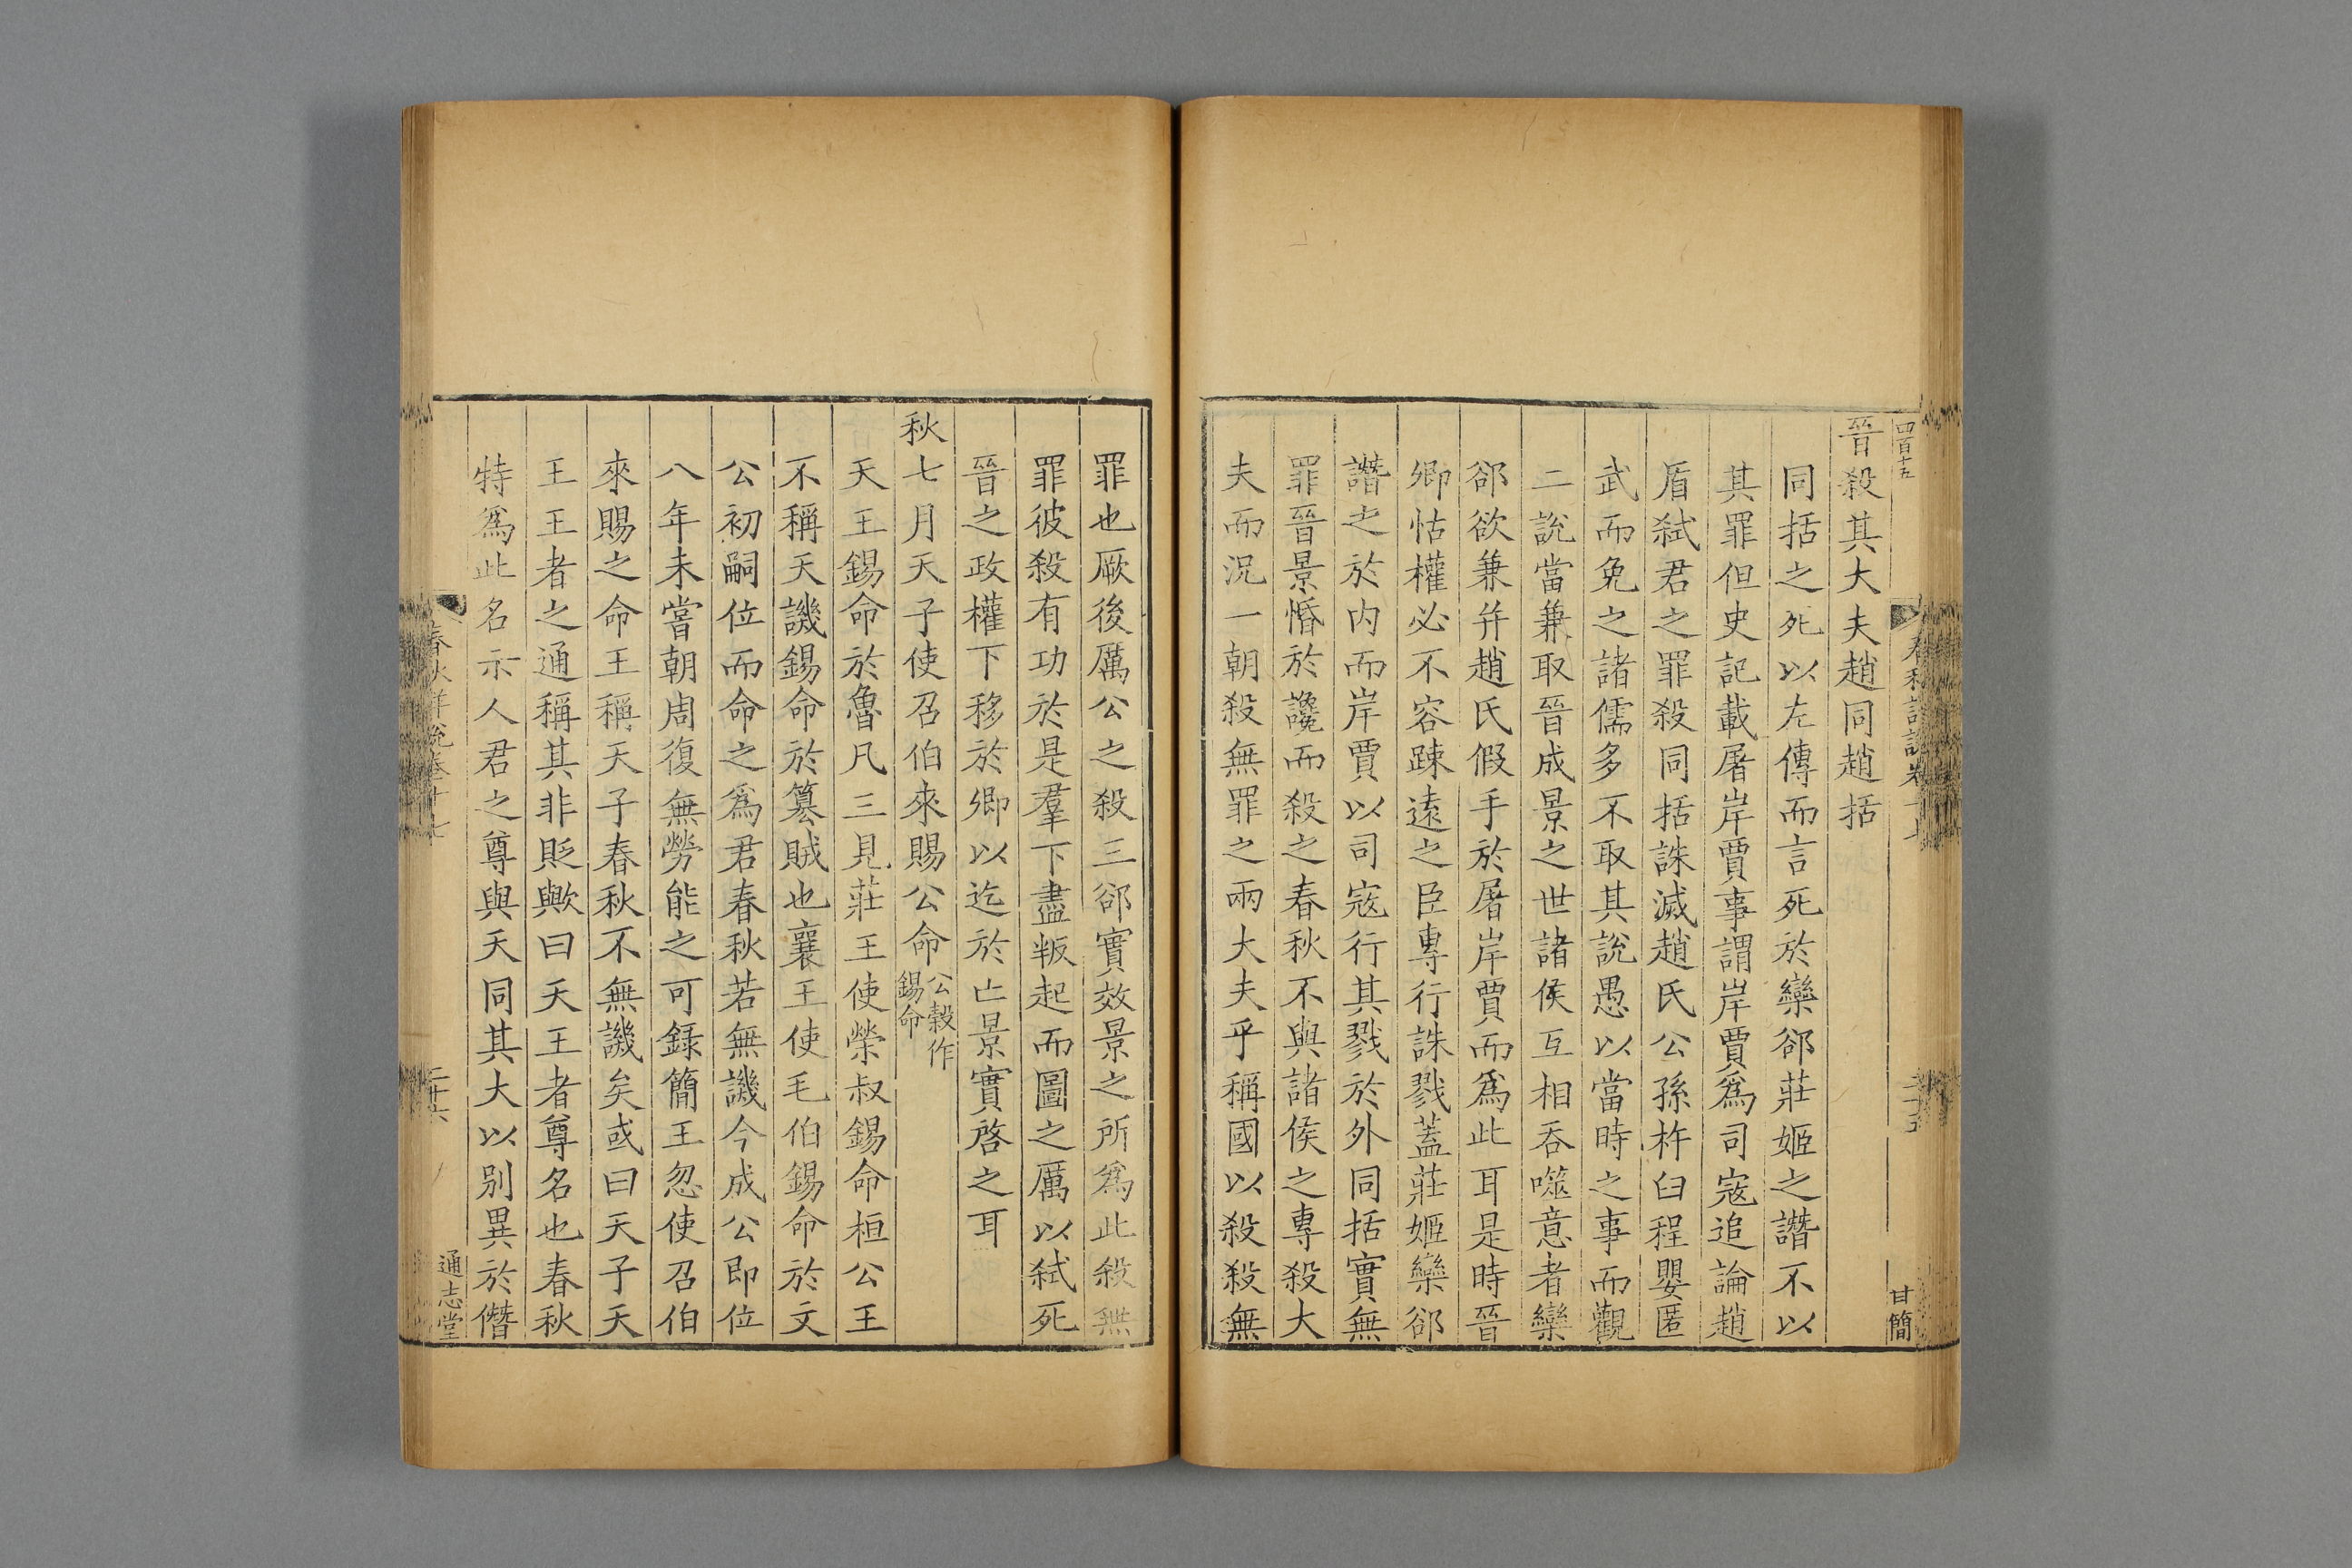 四百十五
甘簡
晉殺其大夫趙同趙括
同括之死以左傳而言死於欒郤莊姬之譖不以
其罪但史記載屠岸賈事謂岸賈爲司寇追論趙
盾弑君之罪殺同括誅滅趙氏公孫杵臼程嬰匿
武而免之諸儒多不取其說愚以當時之事而觀
二說當兼取晉成景之世諸侯互相吞噬意者欒
郤欲兼并趙氏假手於屠岸賈而爲此耳是時晉
卿怙權必不容踈遠之臣專行誅戮蓋莊姬欒郤
譖之於内而岸賈以司寇行其戮於外同括實無
罪晉景惛於讒而殺之春秋不與諸侯之專殺大
夫而況一朝殺無罪之兩大夫乎稱國以殺殺無
罪也厥後厲公之殺三郤實效景之所爲此殺無
罪彼殺有功於是羣下盡叛起而圖之厲以弑死
晉之政權下移於卿以迄於亡景實啓之耳
秋七月天子使召伯來賜公命公穀作錫命
天王錫命於魯凡三見莊王使榮叔錫命桓公王
不稱天譏錫命於簒賊也襄王使毛伯錫命於文
公初嗣位而命之爲君春秋若無譏今成公即位
八年未嘗朝周復無勞能之可録簡王忽使召伯
來賜之命王稱天子春秋不無譏矣或曰天子天
王王者之通稱其非貶歟曰天王者尊名也春秋
特爲此名示人君之尊與天同其大以别異於僭
春秋詳說卷十七
二十六
通志堂